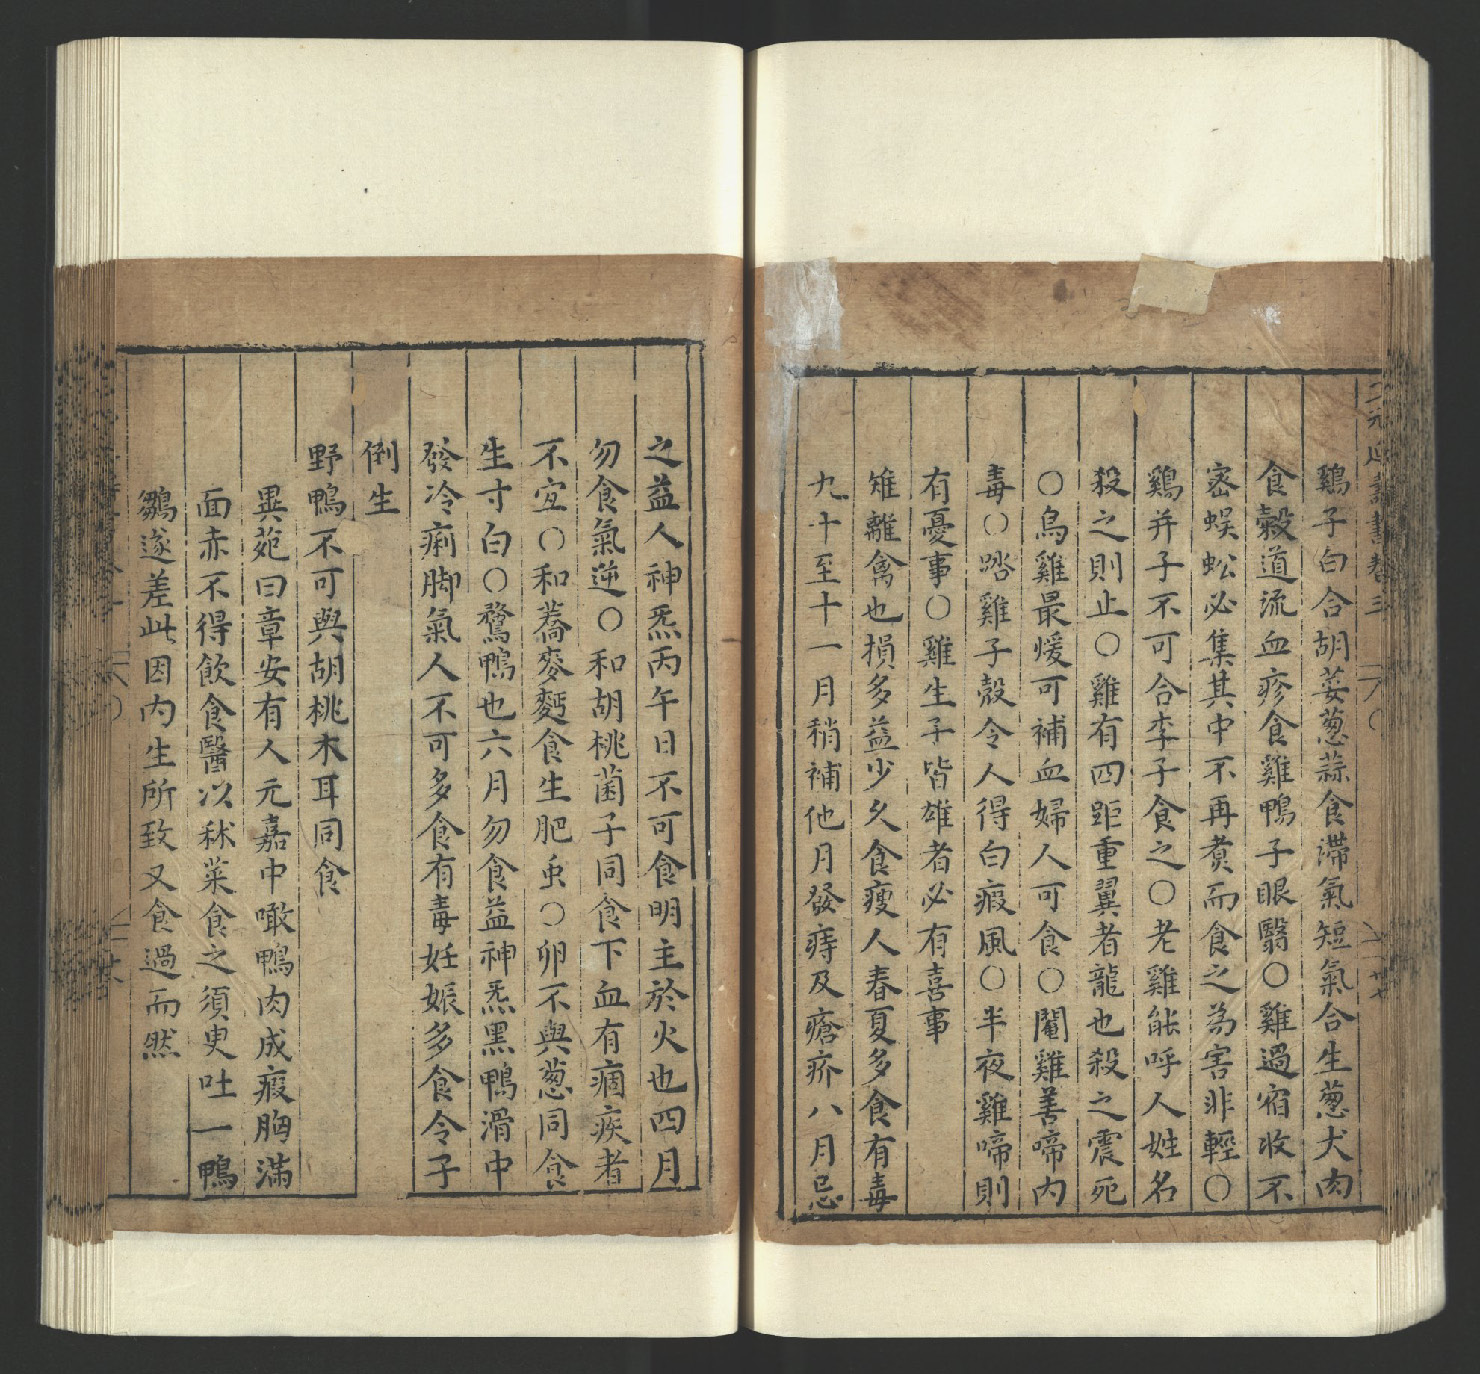 鷄子白合胡荽葱蒜食滯氣短氣合生葱犬肉
食榖道流血疹食雞鴨子眼翳○雞過宿收不
宻蜈蚣必集其中不再煑而食之為害非輕○
鷄并子不可合李子食之○老雞能呼人姓名
殺之則止○雞有四距重翼者龍也殺之震死
○烏雞最煖可補血婦人可食○閹雞善啼内
毒○踏雞子殼令人得白瘢風○半夜雞啼則
有憂事○雞生子皆雄者必有喜事
雉離禽也損多益少久食瘦人春夏多食有毒
九十至十一月稍補他月發痔及瘡疥八月忌
之益人神炁丙午日不可食明主於火也四月
勿食氣逆○和胡桃菌子同食下血有痼疾者
不宜○和蕎麥麪食生肥虫○卵不與葱同食
生寸白○鶩鴨也六月勿食益神炁黑鴨滑中
發冷痢脚氣人不可多食有毒妊娠多食令子
倒生
野鴨不可與胡桃木耳同食
異苑曰章安有人元嘉中噉鴨肉成瘕胸滿
面赤不得飲食醫以秫菜食之須臾吐一鴨
鶵遂差此因内生所致又食過而然